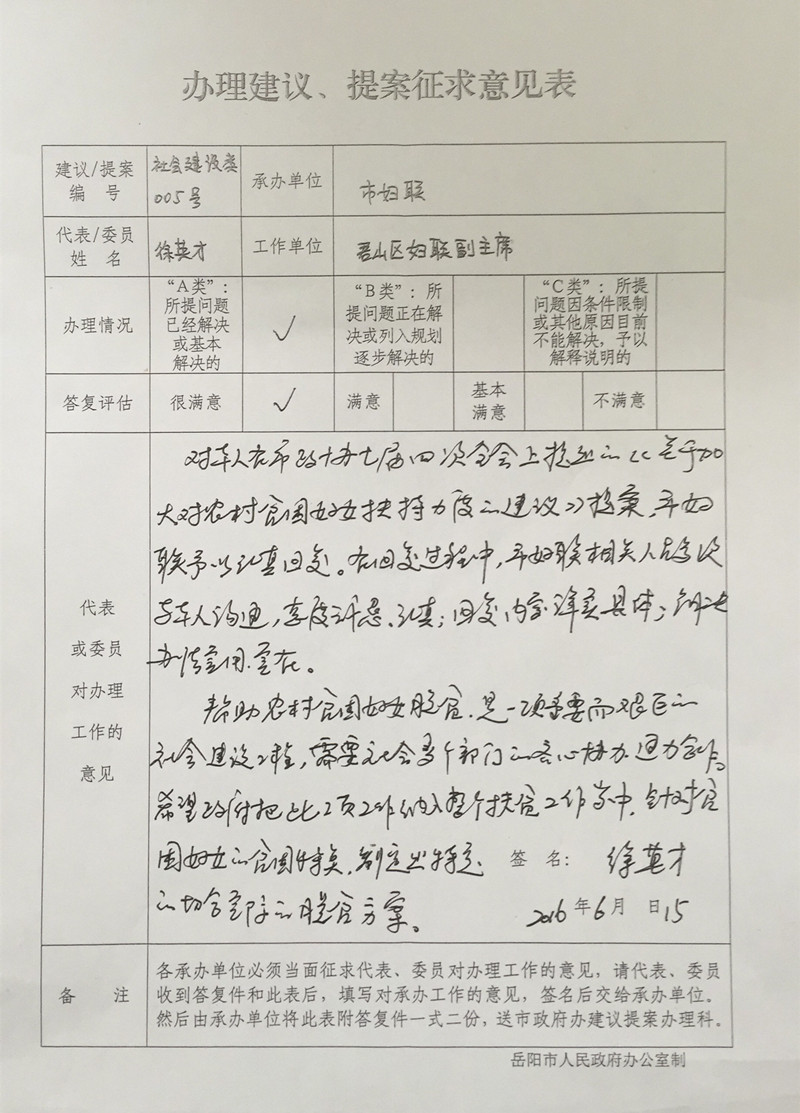 办理建议、提案征求意见表
建议/提案
编 号
社会建设类
005号
承办单位
市妇联
代表/委员
姓 名
徐英才
工作单位
君山区妇联副主席
办理情况
“A类”:
所提问题
已经解决
或基本
解决的
✓
“B类”:所
提问题正在解
决或列入规划
逐步解决的
“C类”:所提
问题因条件限制
或其他原因目前
不能解决,予以
解释说明的
答复评估
很满意
✓
满意
基本
满意
不满意
代表
或委员
对办理
工作的
意见
对本人在市政协七届四次全会上提出的《关于加
大对农村贫困妇女扶持力度的建议》提案,市妇
联予以认真回复。在回复过程中,市妇联相关人员多次
与本人沟通,态度诚恳、认真;回复内容详实具体;
办法管用、实在。
帮助农村贫困妇女脱贫,是一项重要而艰巨的
社会建设工程,需要社会多个部门的齐心协办、通力合作。
希望政府把此项工作纳入整个扶贫工作当中,针对贫
困妇女的贫困特点,制定出特定
的切合实际的脱贫方案。
签 名: 徐英才
2016年6月 日15
备 注
各承办单位必须当面征求代表、委员对办理工作的意见,请代表、委员
收到答复件和此表后,填写对承办工作的意见,签名后交给承办单位。
然后由承办单位将此表附答复件一式二份,送市政府办建议提案办理科。
岳阳市人民政府办公室制